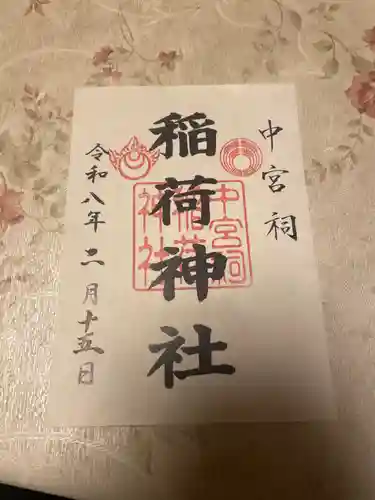 中宮祠
稲荷神社
令和八年六月十五日
中宮祠
稲荷
神社